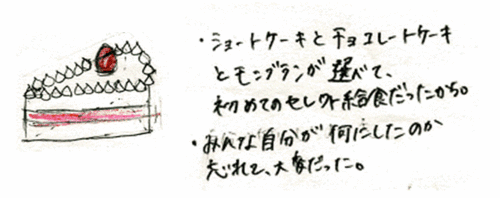 ・ショートケーキとチョコレートケーキ
とモンブランが選べて、
初めてのセレクト給食だったから。
・みんな自分が何にしたのか
忘れて、大変だった。